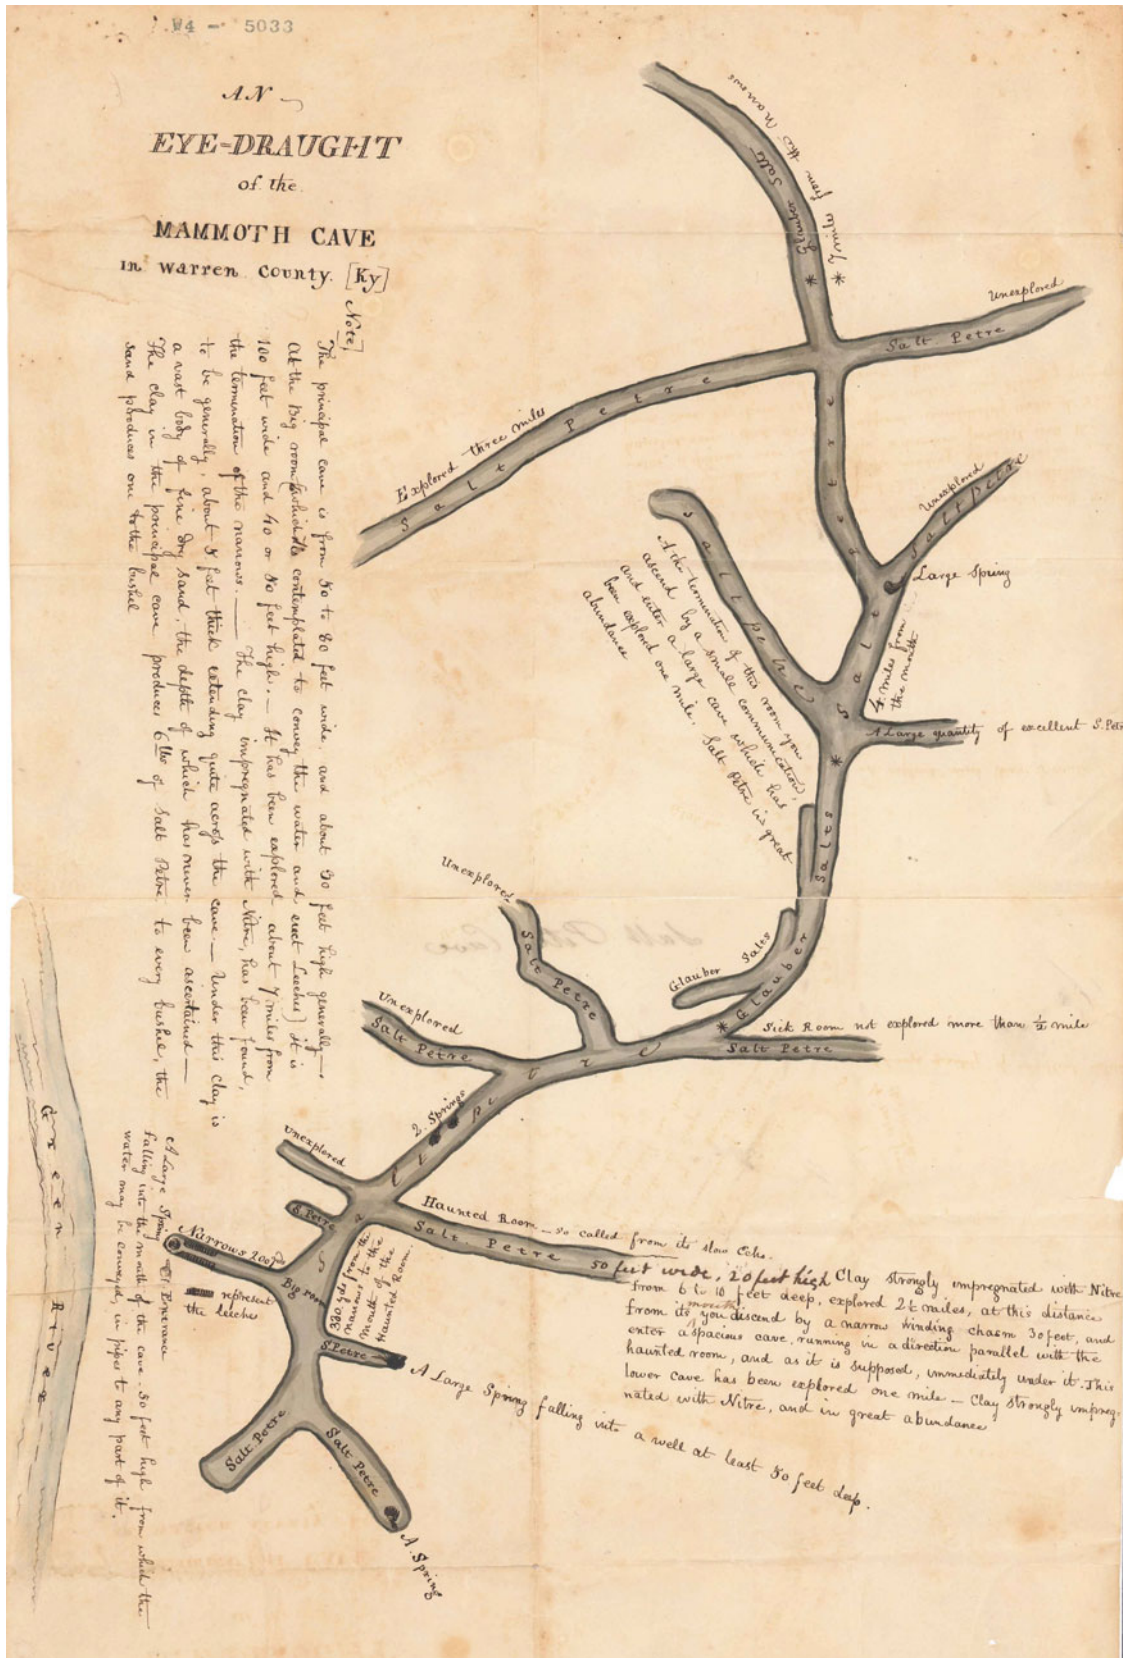 W4 - 5033
AN
EYE-DRAUGHT
of the
MAMMOTH CAVE
in Warren County. [Ky]
Note]
The principal cave is from 50 to 80 feet wide, and about 50 feet high generally—
At the Big room (which it is contemplated to convey the water and erect Leeches) it is
100 feet wide and 40 or 50 feet high. — It has been explored about 7 miles from
the termination of the narrows. — The clay impregnated with Nitre, has been found,
to be generally, about 5 feet thick extending quite across the cave. — Under this clay is
a vast body of fine dry sand, the depth of which has never been ascertained —
The clay in the principal cave produces 6 lbs of Salt Petre, to every bushel, the
sand produces one to the bushel
7 miles from the Narrows
*
Glauber Salts
*
Unexplored
Salt Petre
Explored three miles
Salt Petre
Unexplored
Salt petre
Large Spring
4 miles from
the mouth
Salt petre
Saltpetre
At the termination of this room you
ascend by a small communication,
and enter a large cave which has
been explored one mile. Salt Petre in great
abundance
A Large quantity of excellent S. Petr
*
Glauber Salts
Glauber Salts
*
Sick Room not explored more than ½ mile
Salt Petre
Unexplored
Salt Petre
Unexplored
Salt Petre
2. Springs
Saltpetre
Unexplored
S. Petre
Haunted Room — so called from its slow Echo.
Salt Petre
50 feet wide, 20 feet high Clay strongly impregnated with Nitre
from 6 to 10 feet deep, explored 2½ miles, at this distance
from its mouth you discend by a narrow winding chasm 30 feet, and
enter a spacious cave, running in a direction parallel with the
haunted room, and as it is supposed, immediately under it. This
lower cave has been explored one mile — Clay strongly impreg-
nated with Nitre, and in great abundance
330 yds from the
narrows to the
mouth of the
Haunted Room.
Narrows 200 yds
Big room
represent
the leeches
S. Petre
A Large Spring falling into a well at least 50 feet deep.
Salt Petre
Salt Petre
A Spring
A Large Spring
Enterance
falling into the mouth of the cave. 50 feet high from which the
water may be conveyed, in pipes to any part of it.
Green River